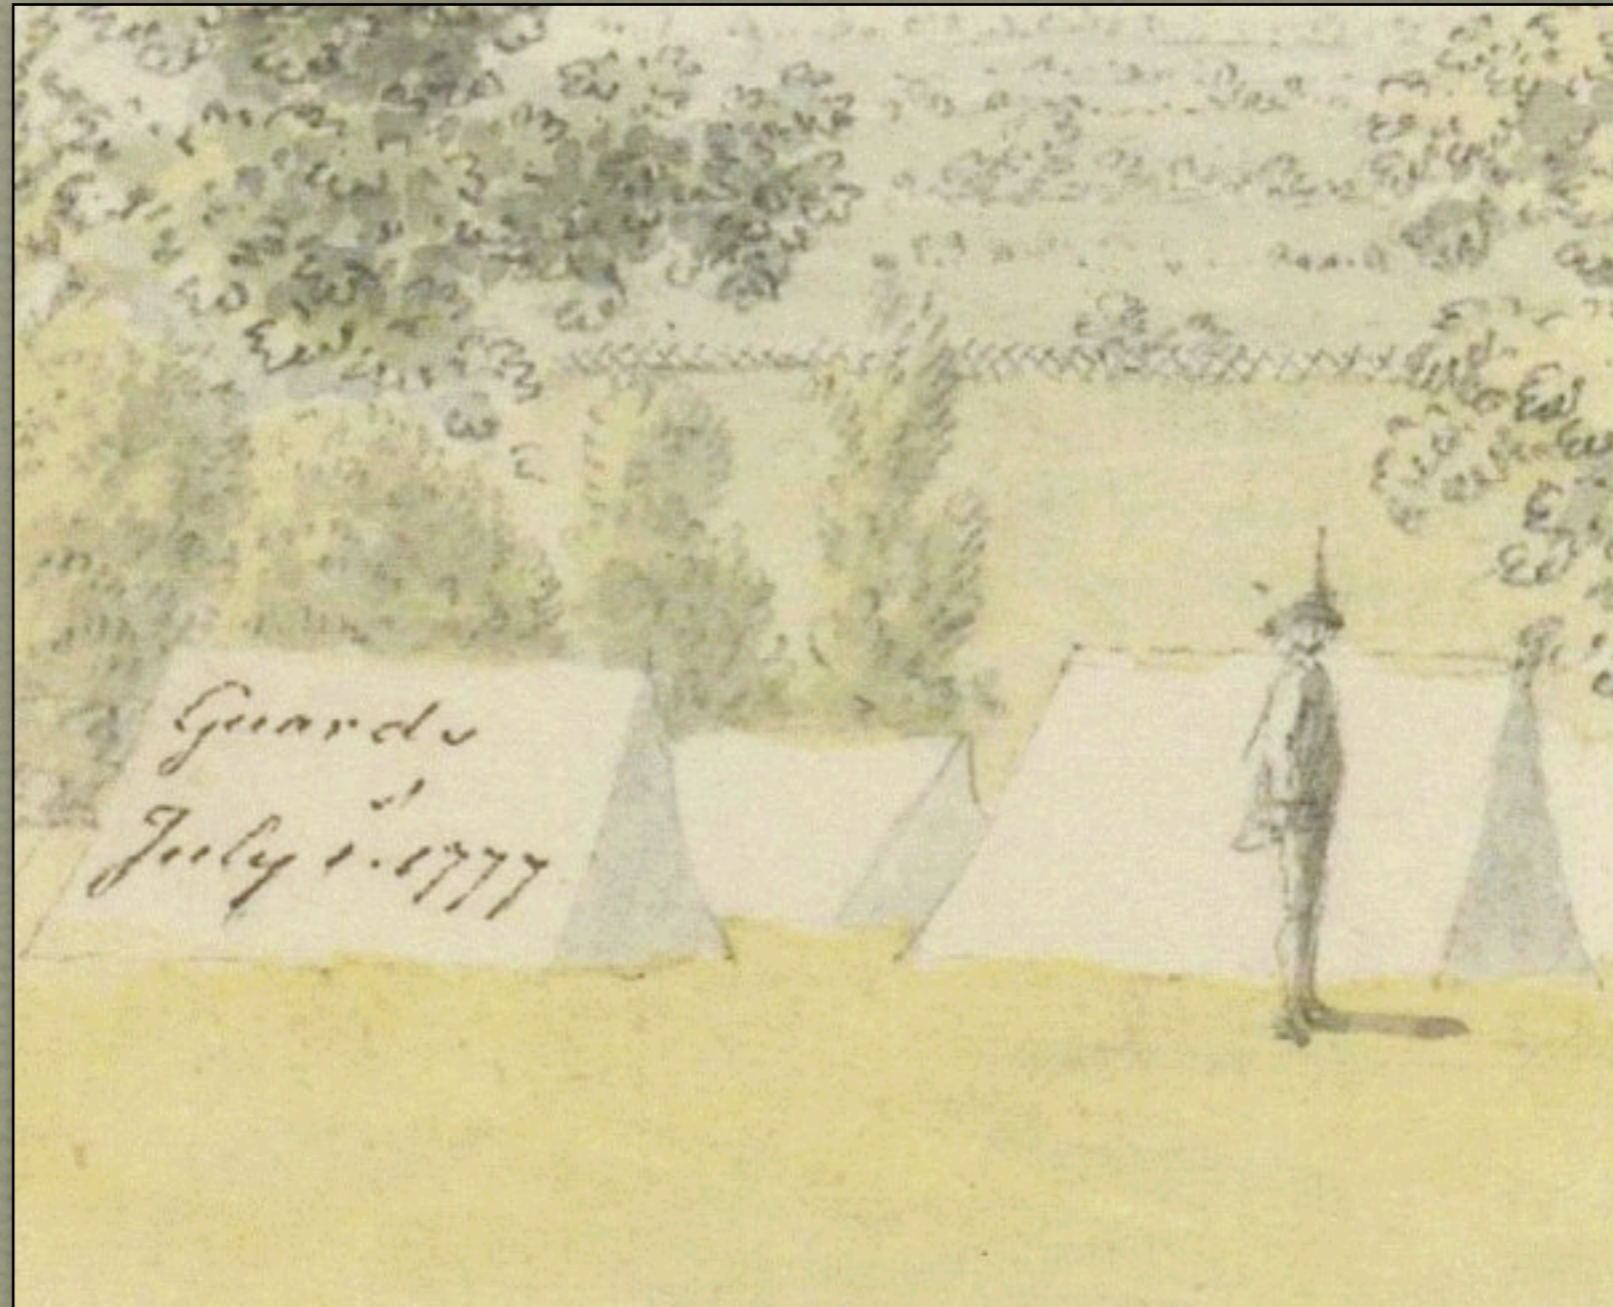 Guards
July 1.st 1777